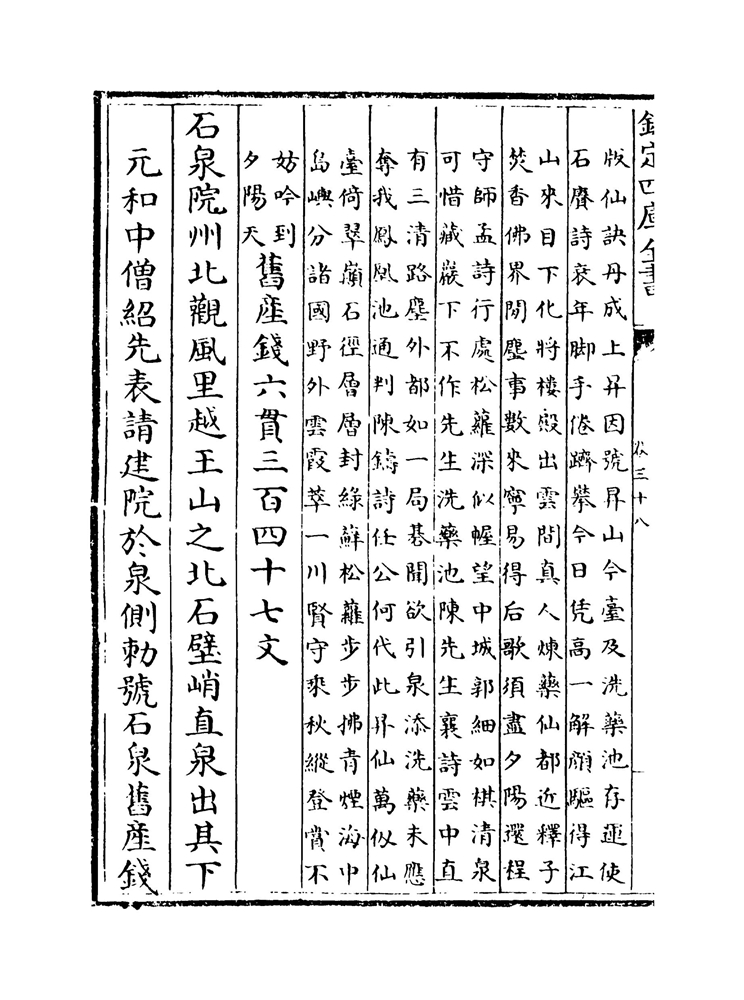 欽定四庫全書
卷三十八
版仙訣丹成上昇因號昇山今臺及洗藥池存運使
石賡詩衰年脚手倦躋攀今日凭高一解顔驅得江
山來目下化將樓殿出雲間真人煉藥仙都近釋子
焚香佛界閒塵事數來寧易得后歌須盡夕陽還程
守師孟詩行處松蘿深似幄望中城郭細如棋清泉
可惜藏巖下不作先生洗藥池陳先生襄詩雲中直
有三清路塵外都如一局碁聞欲引泉添洗藥未應
奪我鳳凰池通判陳鑄詩任公何代此昇仙萬仭仙
臺倚翠巔石徑層層封緑蘚松蘿步步拂青煙海中
島嶼分諸國野外雲霞萃一川賢守乘秋縱登賞不
妨吟到
夕陽天
舊産錢六貫三百四十七文
石泉院州北觀風里越王山之北石壁峭直泉出其下
元和中僧紹先表請建院於泉側勅號石泉舊産錢